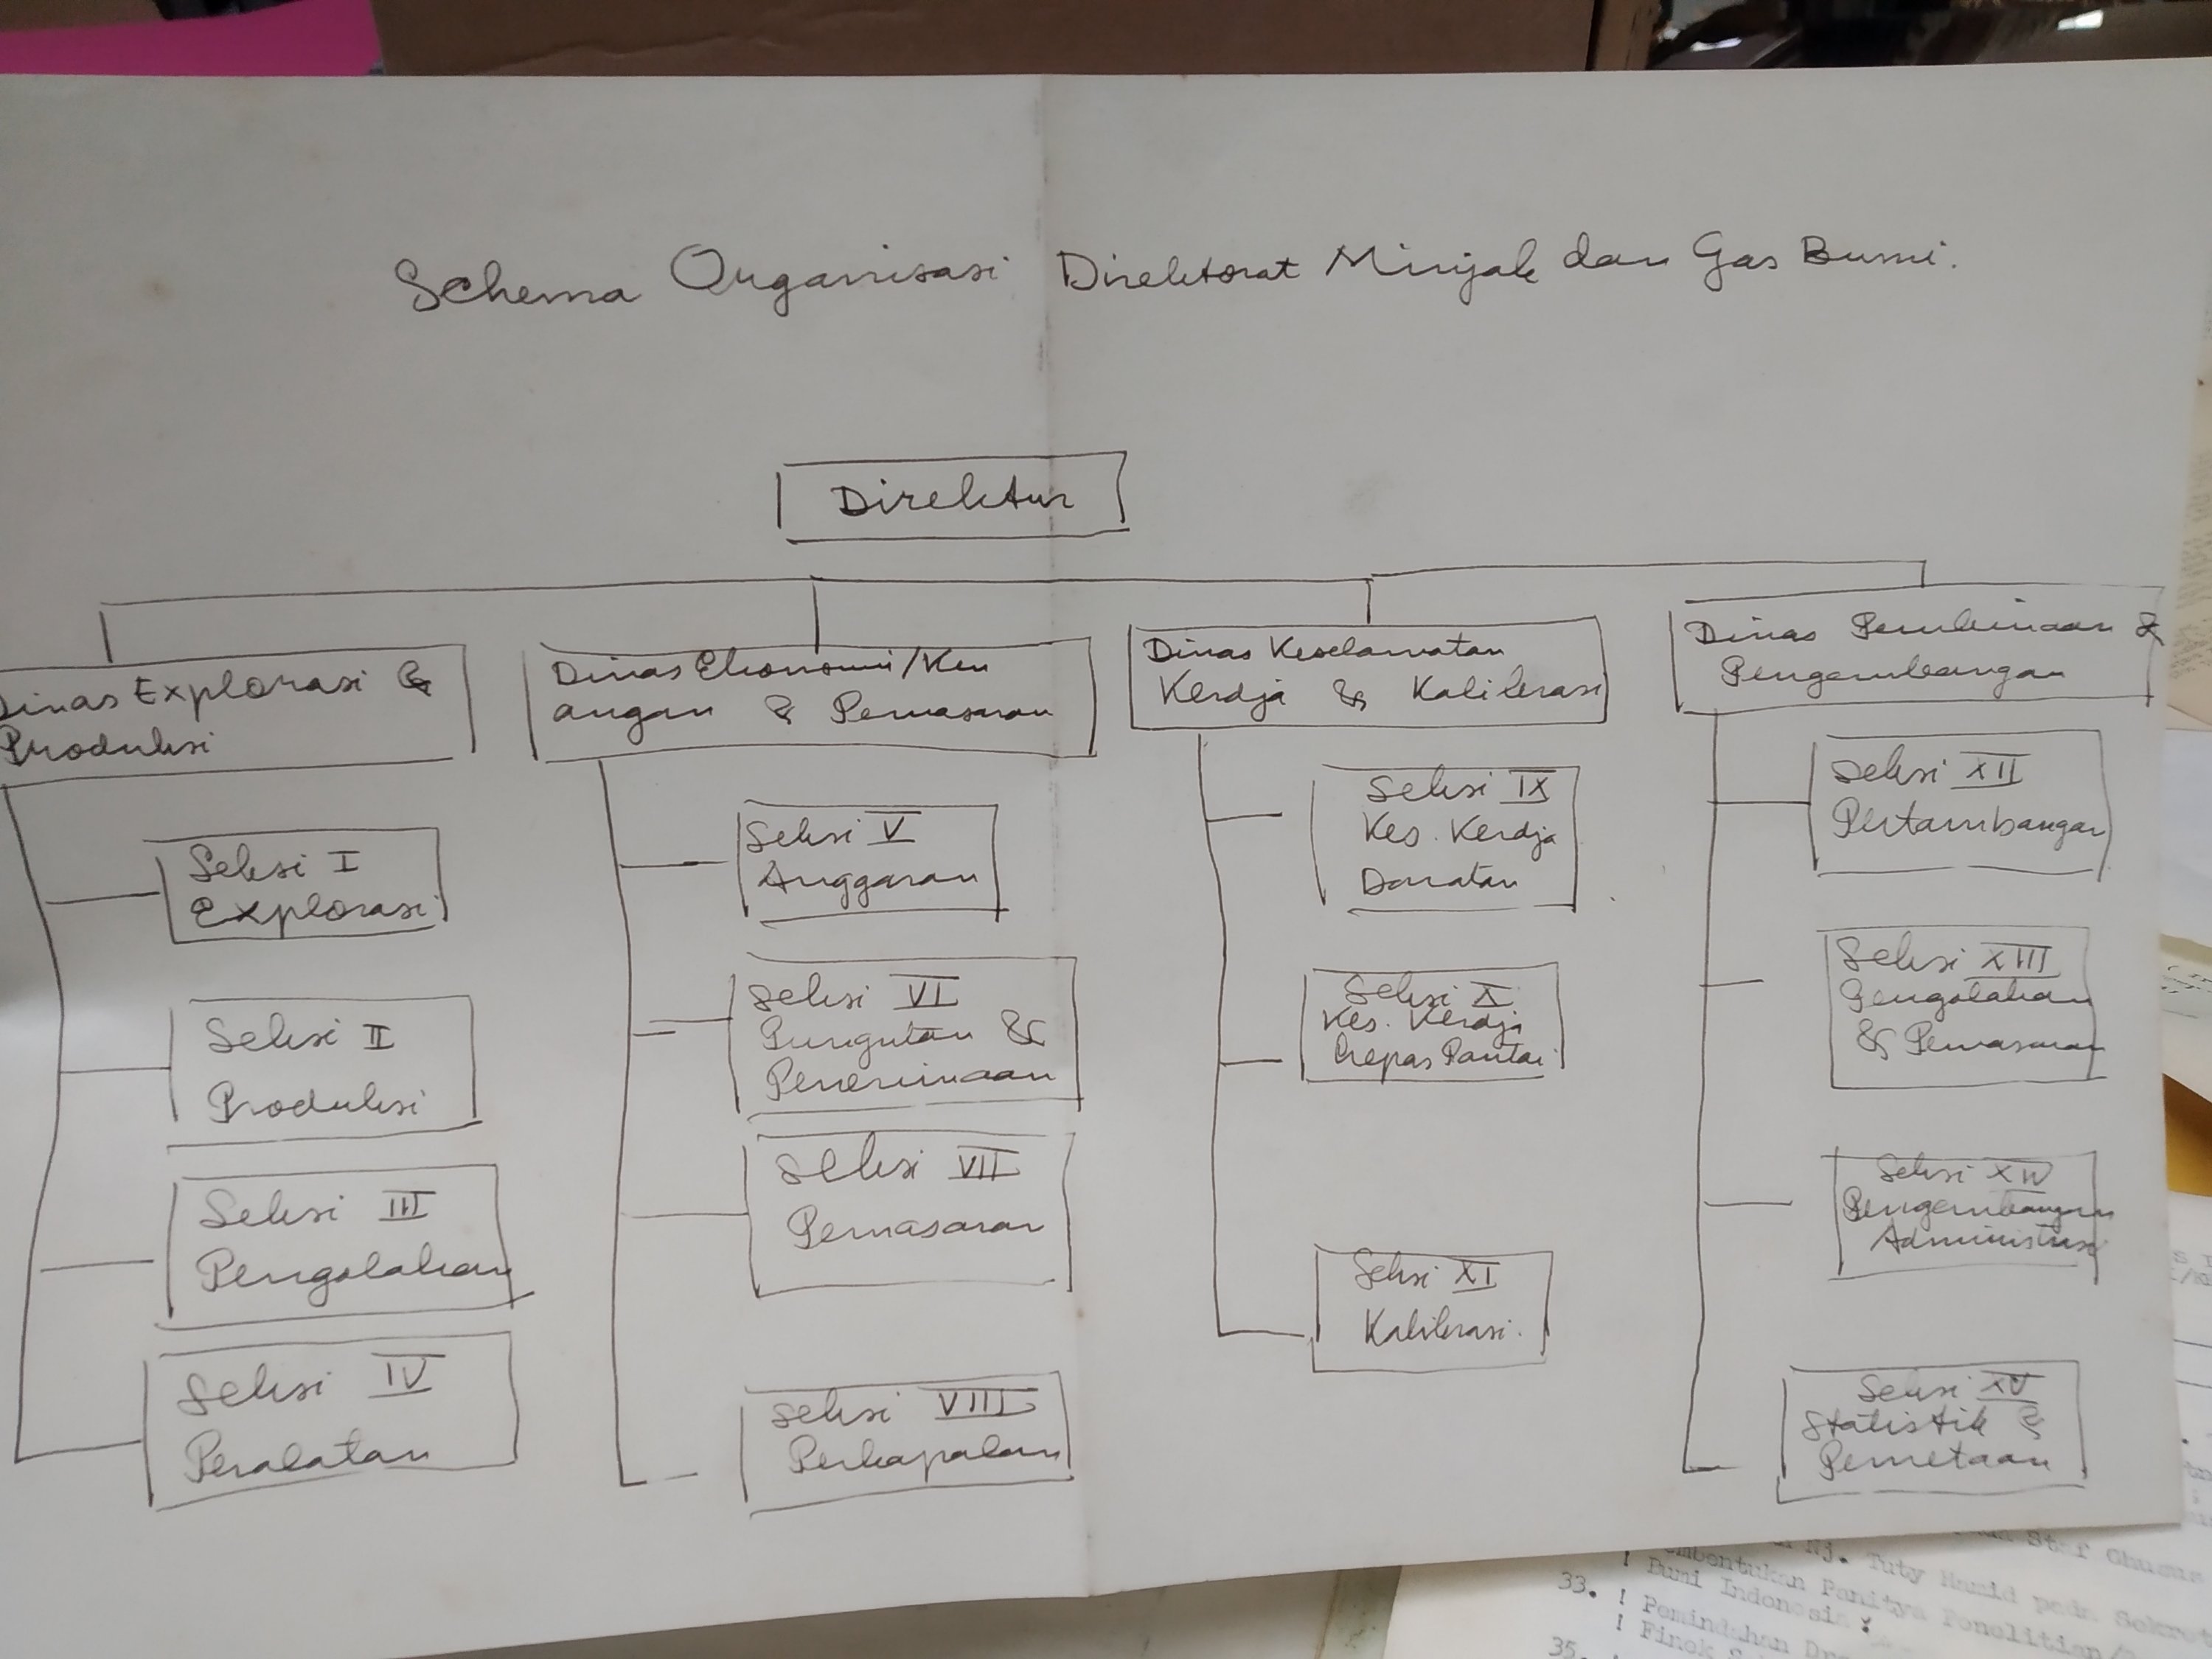 Schema Organisasi Direktorat Minjak dan Gas Bumi.
Direktur
Dinas Explorasi &
Produksi
Seksi I
Explorasi
Seksi II
Produksi
Seksi III
Pengolahan
Seksi IV
Peralatan
Dinas Ekonomi/Keu
angan & Pemasaran
Seksi V
Anggaran
Seksi VI
Pungutan &
Penerimaan
Seksi VII
Pemasaran
Seksi VIII
Perkapalan
Dinas Keselamatan
Kerdja & Kalibrasi
Seksi IX
Kes. Kerdja
Daratan
Seksi X
Kes. Kerdja
Lepas Pantai
Seksi XI
Kalibrasi.
Dinas Pembinaan &
Pengembangan
Seksi XII
Pertambangan
Seksi XIII
Pengolahan
& Pemasaran
Seksi XIV
Pengembangan
Administrasi
Seksi XV
Statistik &
Pemetaan
Nj. Tuty Hamid pada Sekret
Panitya Penelitian/
! Bumi Indonesia
33. ! Pemindahan
35.